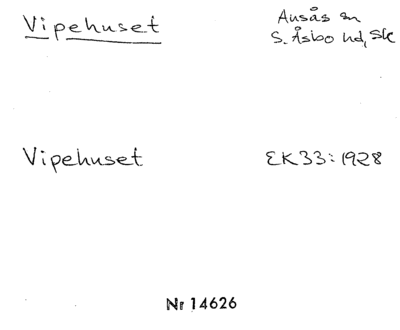 Vipehuset
Ausås sn
S. Åsbo hd, Sk
Vipehuset
EK33:1928
Nr 14626